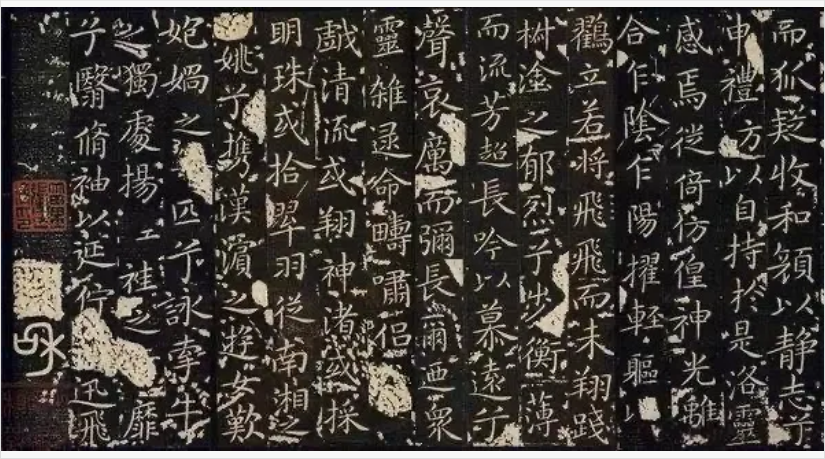 而狐疑收和顔以静志兮
申禮方以自持於是洛靈
感焉徙倚彷徨神光離
合乍陰乍陽擢輕軀以
鸖立若將飛飛而未翔踐
椒塗之郁烈兮步衡薄
而流芳超長吟以慕遠兮
聲哀厲而彌長爾迺衆
靈雜遝命疇嘯侶
戲清流或翔神渚或採
明珠或拾翠羽從南湘之
姚兮携漢濱之遊女歎
匏媧之匹兮詠牽牛
之獨處揚袿之靡
兮翳脩袖以延佇迅飛